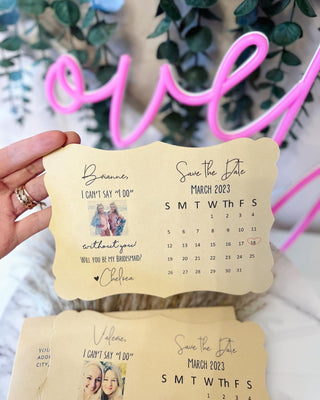 ove
Brianne,
I CAN'T SAY "I DO"
without you!
WILL YOU BE MY BRIDESMAID?
♥Chelsea
Save the Date
MARCH 2023
S M T W Th F S
1 2 3 4
5 6 7 8 9 10 11
12 13 14 15 16 17 18
19 20 21 22 23 24 25
26 27 28 29 30 31
YOU
ADD
CITY,
Valerie,
I CAN'T SAY "I DO"
Save the Date
MARCH 2023
S M T W Th F S
1 2 3 4